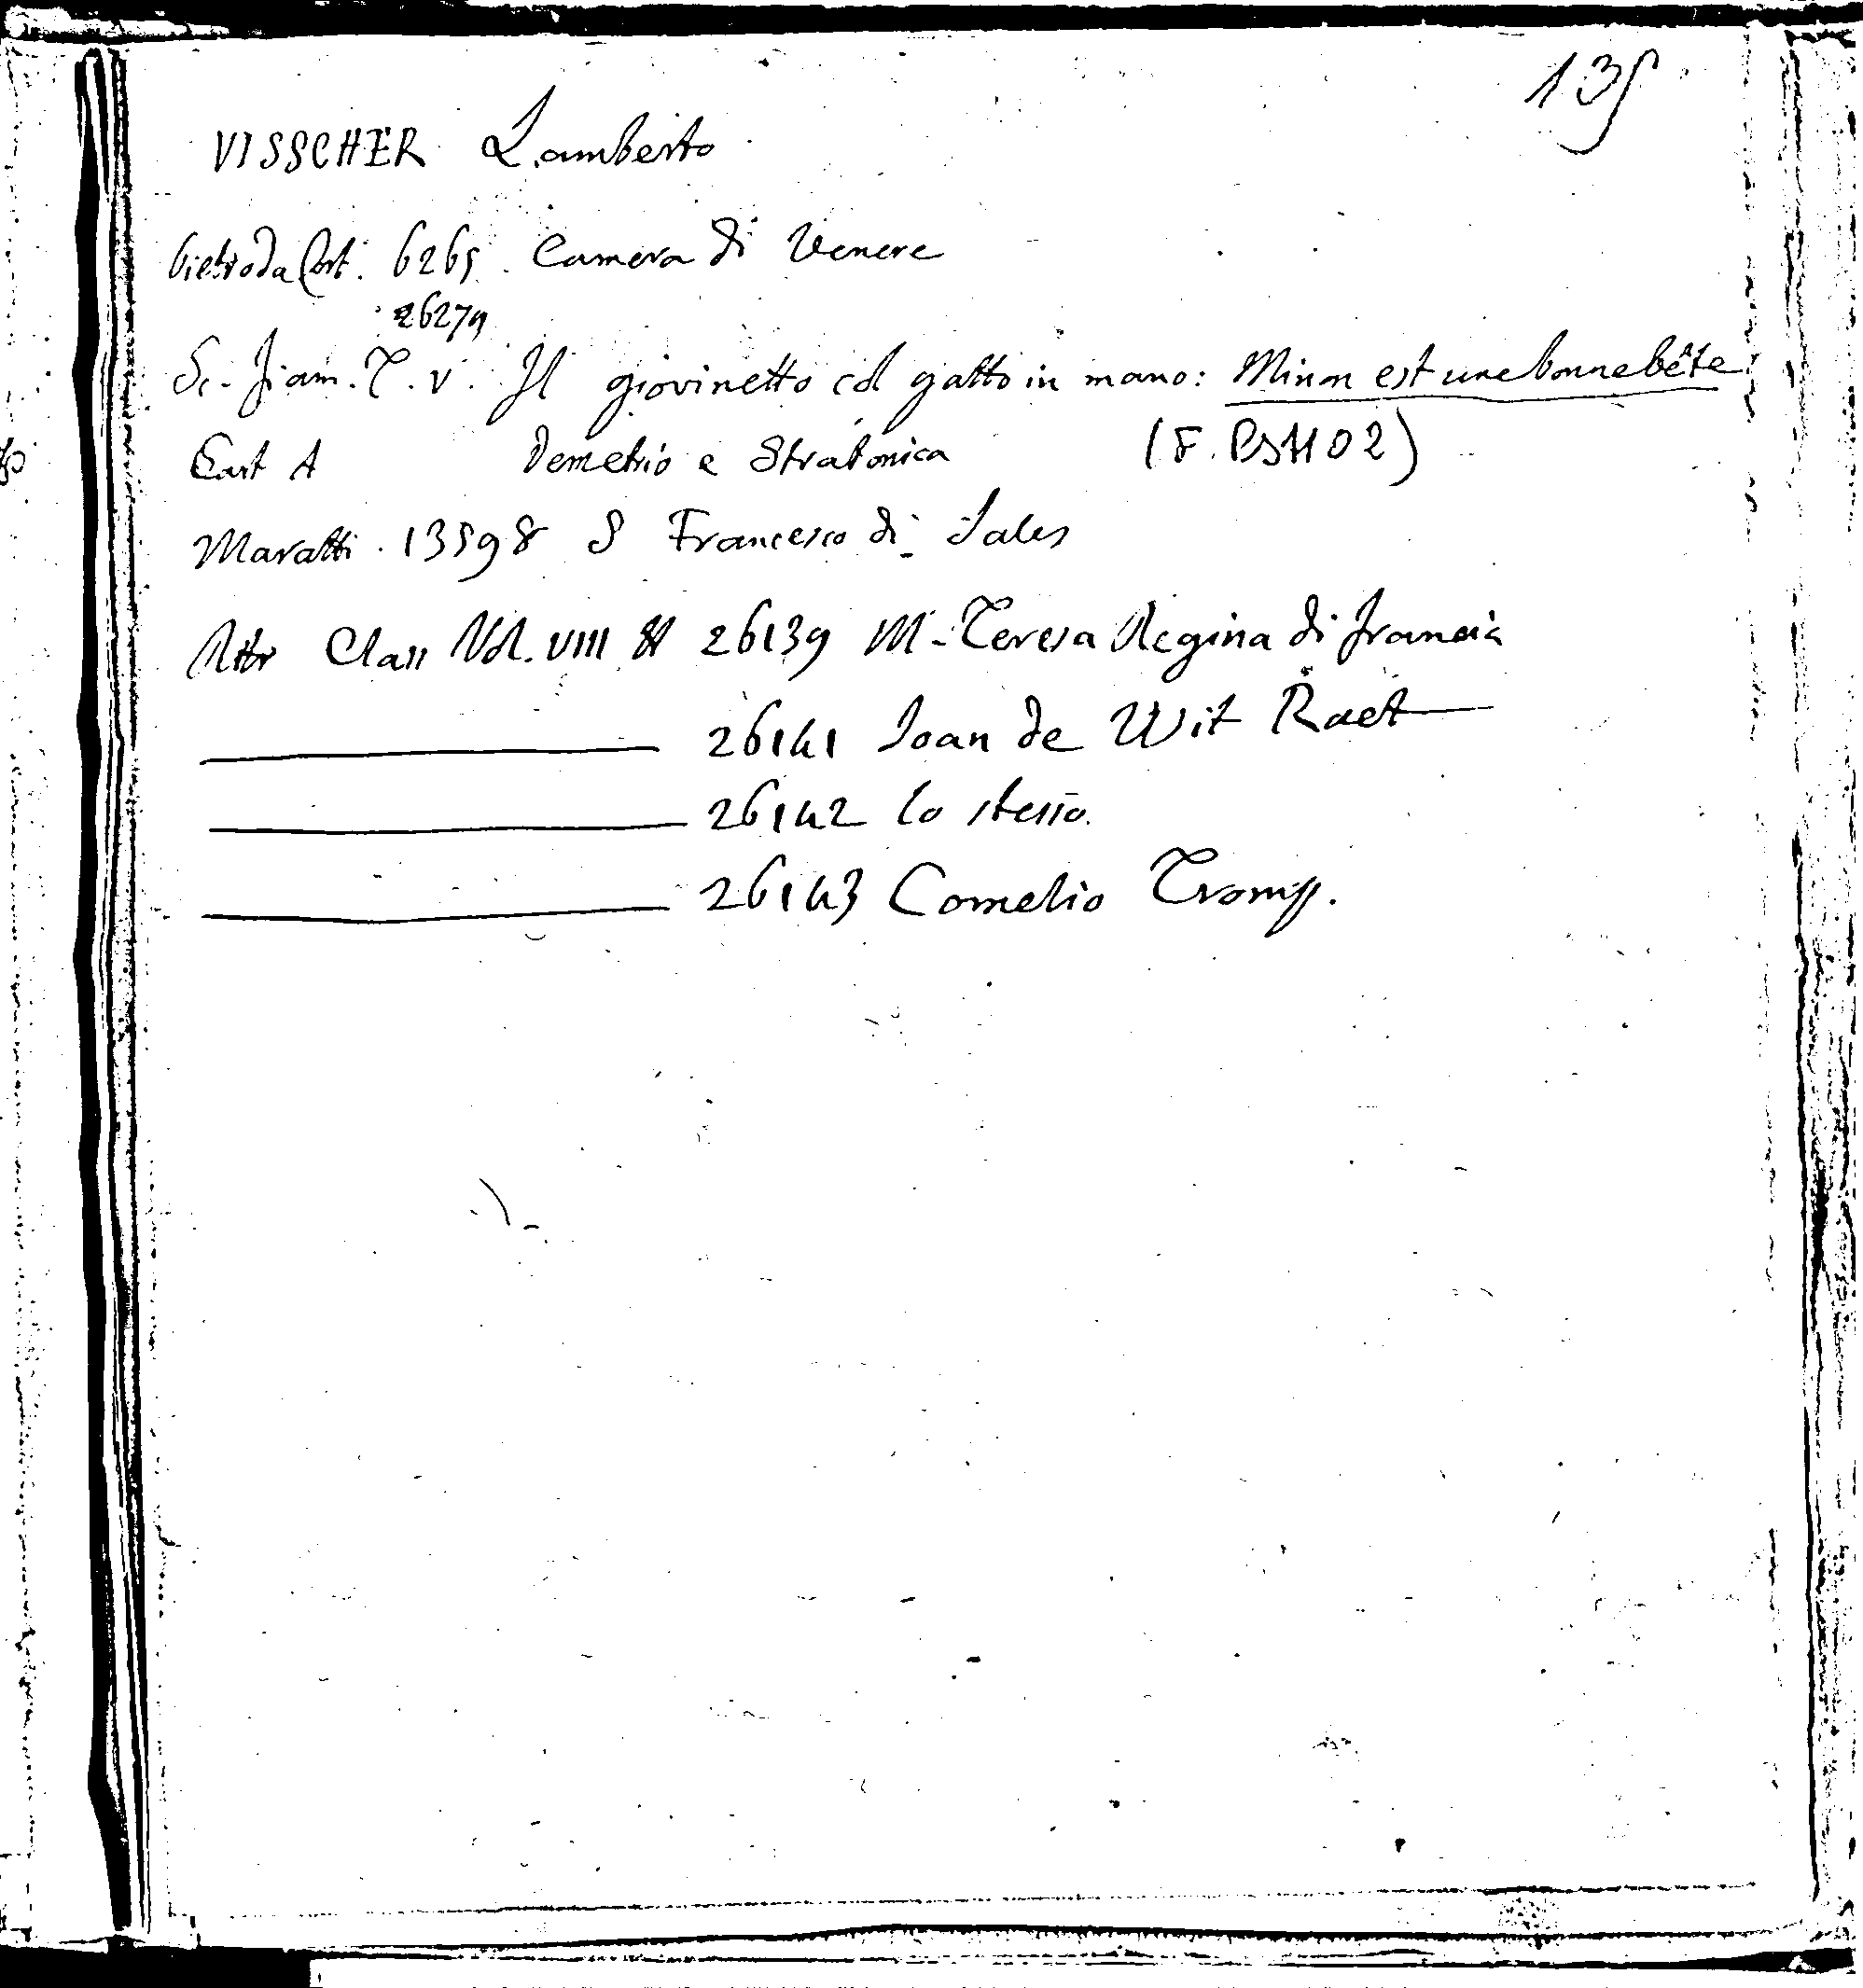 135
VISSCHER Lamberto
Pietro da Cort. 6265. Camera di Venere
26279
Sc. Fiam. T. v. Il giovinetto col gatto in mano: Minon est une bonne bête
Cart A Demetrio e Stratonica (F.
Maratti. 13598 S Francesco di Sales
Ritr Class Vol. VIII N 26139 M. Teresa Regina di francia
26141 Joan de Wit Raet
26142 lo stesso.
26143 Cornelio Tromp.